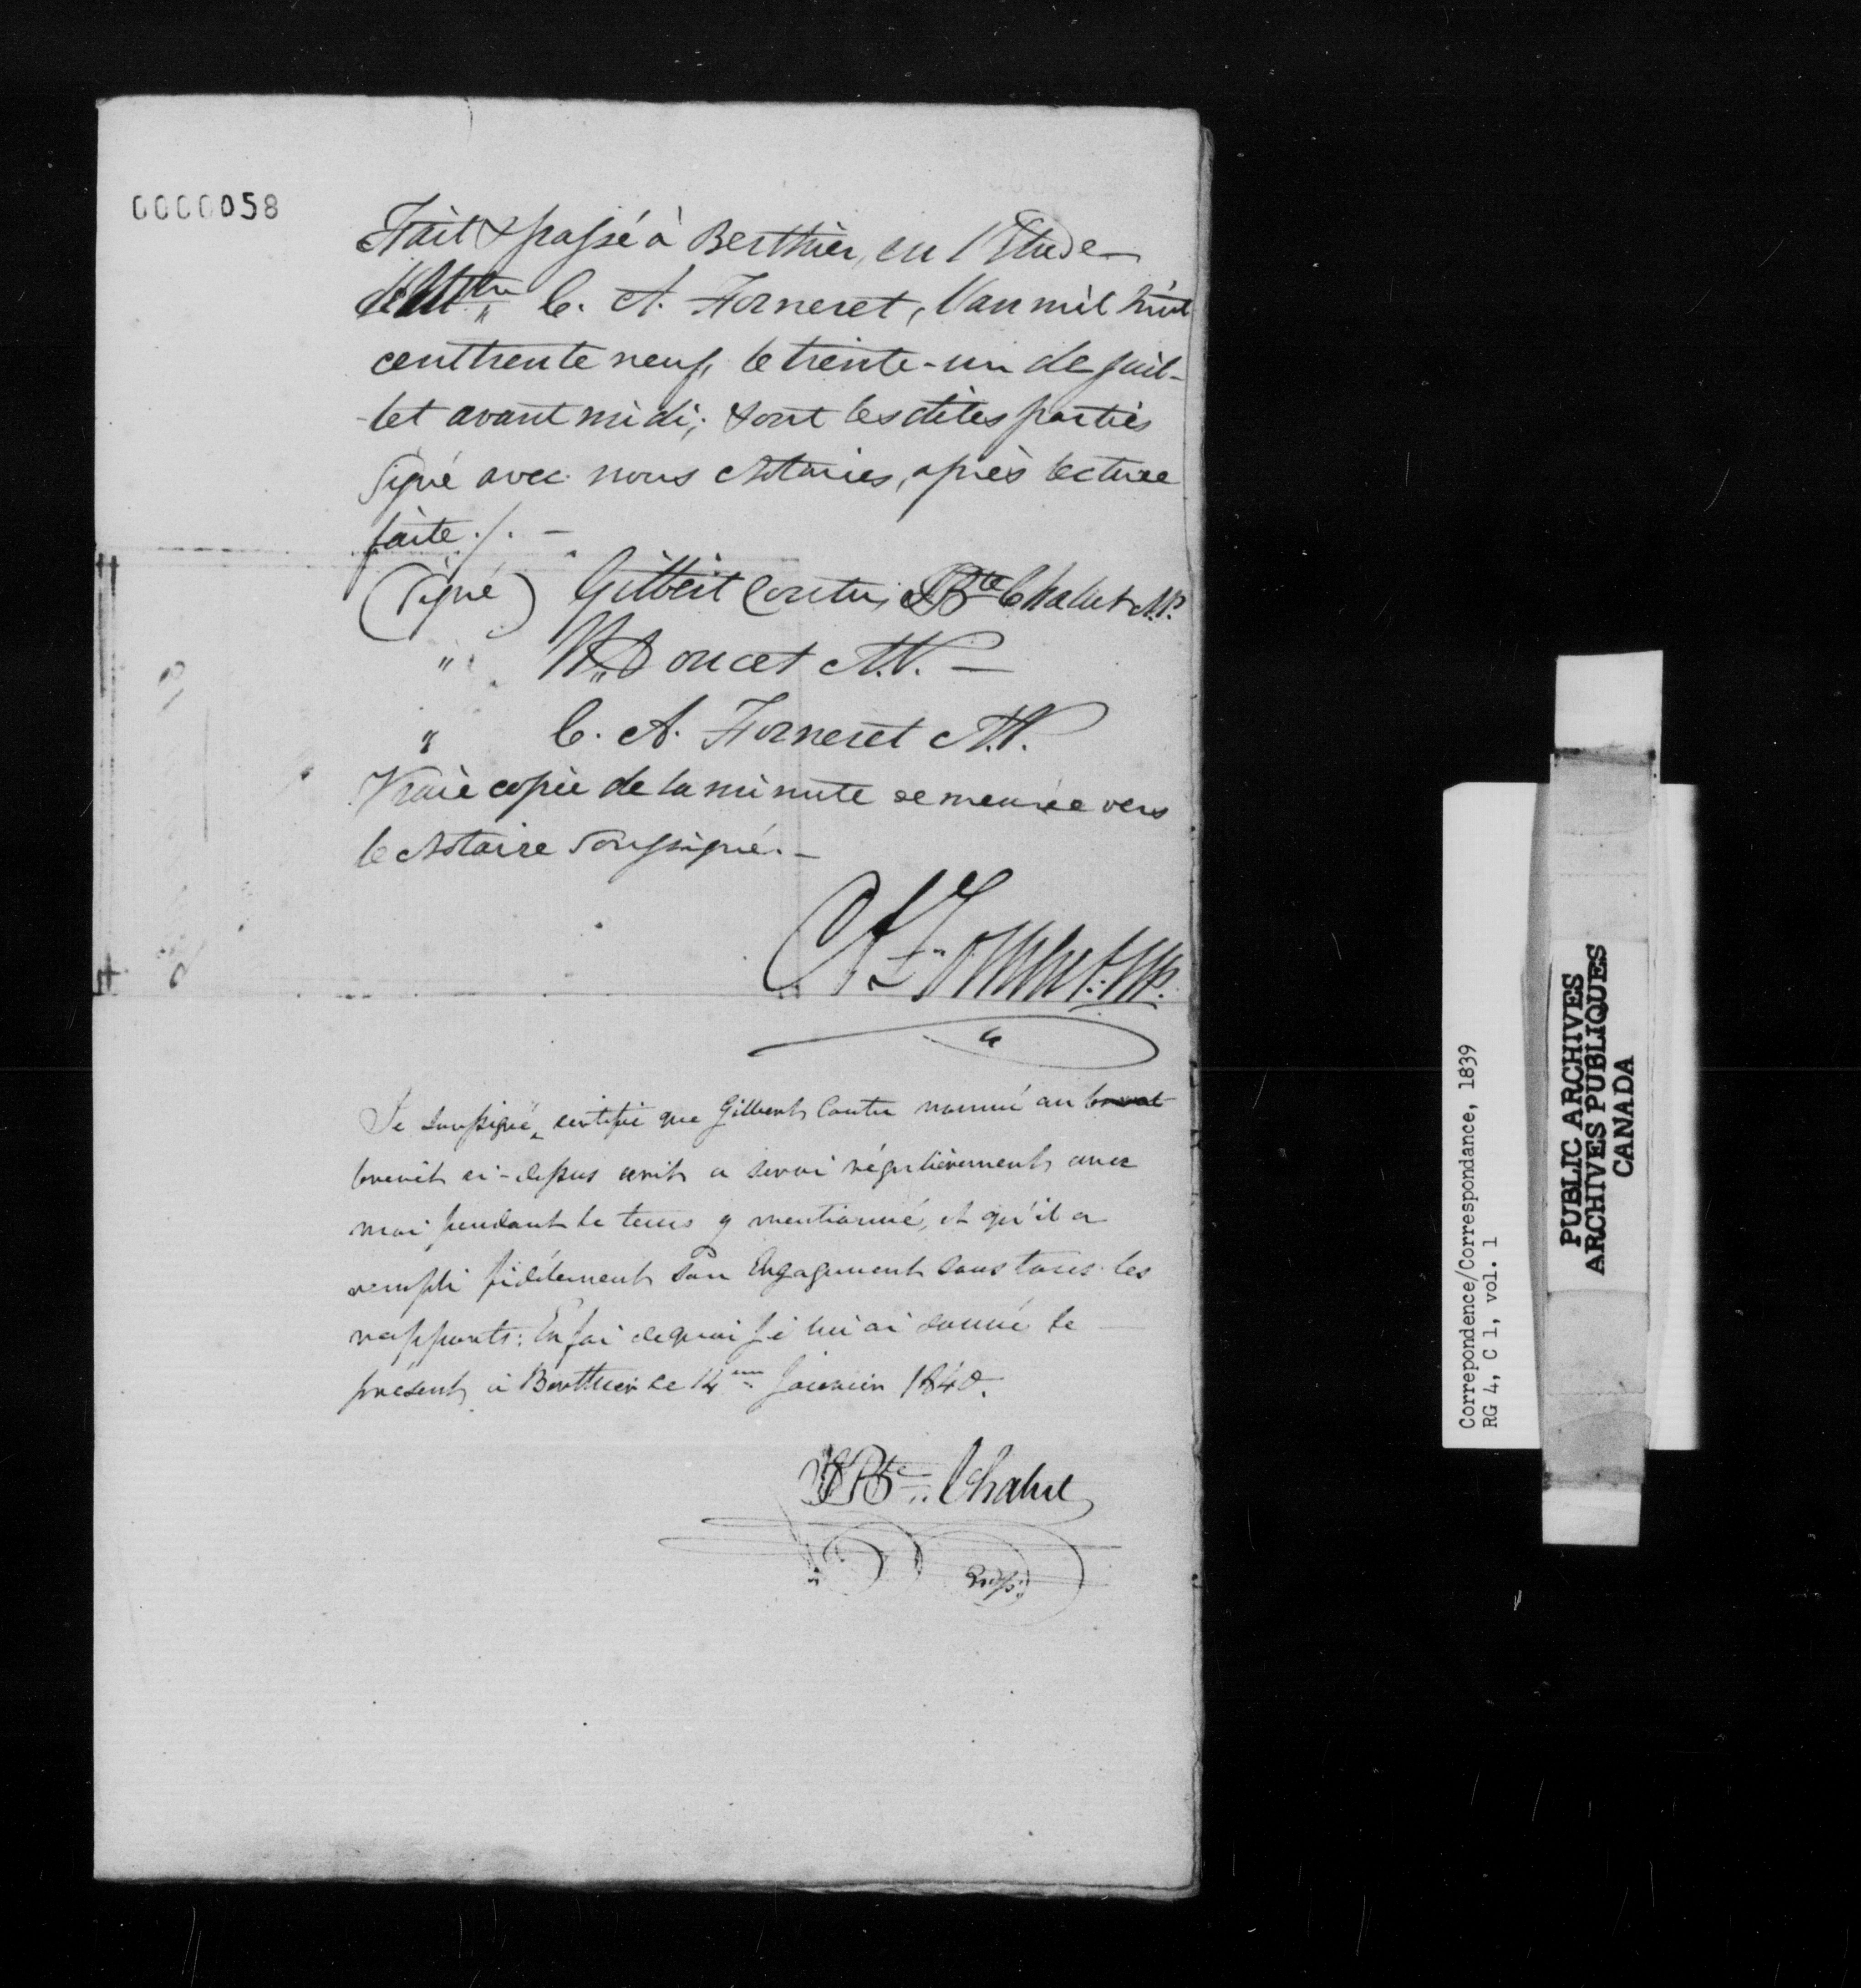 0000058
Fait & passé à Berthier, en l'Etude
de Mtre C. A. Forneret, l'an mil huit
cent trente neuf, le trente-un de juil-
-let avant midi; & ont les dites parties
Signé avec nous Notaires, après lecture
faite ./. —
(Signé) Gilbert Coutu, JBte Chalut N.P.
" W. Doucet N.P. —
" C. A. Forneret N.P.
Vraie copie de la minute demeurée vers
le Notaire Soussigné. —
C A Forneret N.P.
Je soussigné certifie que Gilbert Coutu nommé au brevet
brevet ci-dessus écrit a servi régulièrement avec
moi pendant le tems y mentionné, et qu'il a
rempli fidélement son Engagement sous tous les
rapports: En foi de quoi je lui ai donné le
présent, à Berthier le 14eme Janvier 1840.
JBte Chalut
Correpondence/Correspondance, 1839
RG 4, C 1, vol. 1
PUBLIC ARCHIVES
ARCHIVES PUBLIQUES
CANADA